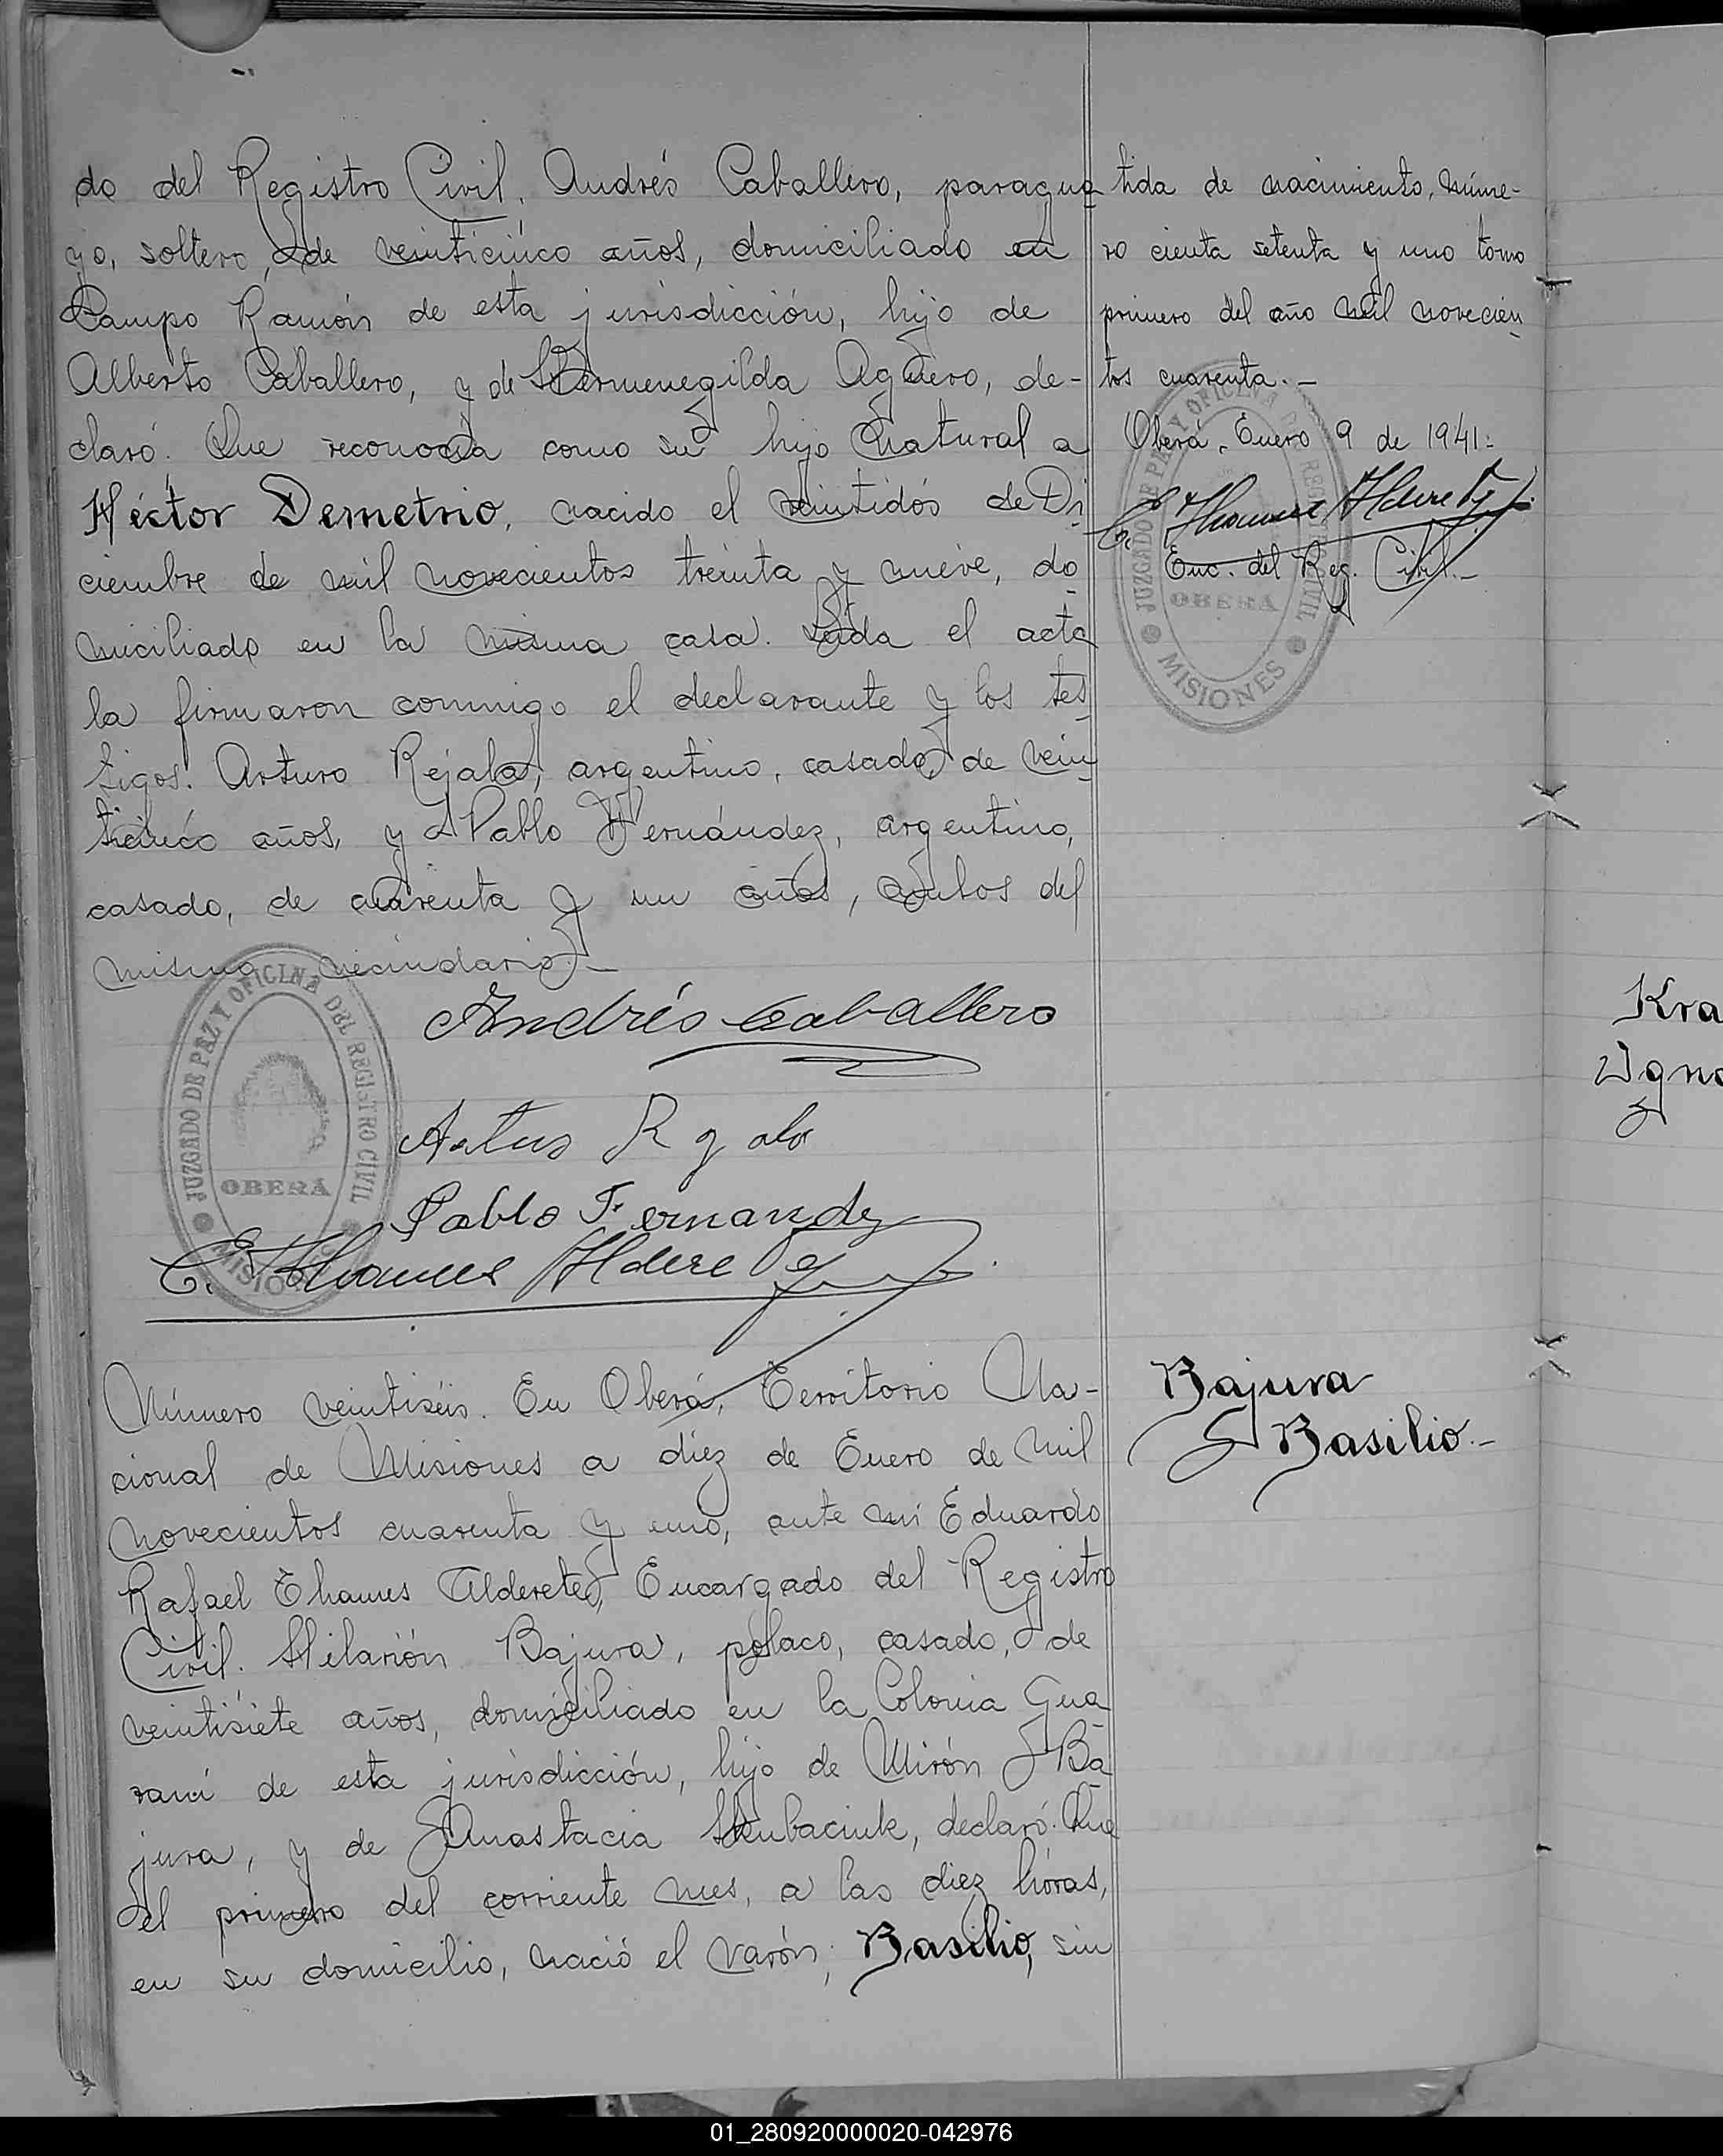 do del Registro Civil. Andrés Caballero, paragua
yo, soltero, de veinticinco años, domiciliado en
Campo Ramón de esta jurisdicción, hijo de
Alberto Caballero, y de Hermenegilda Agüero, de-
claró: Que reconocía como su hijo natural a
Héctor Demetrio, nacido el veintidós de Di
ciembre de mil novecientos treinta y nueve, do
miciliado en la misma casa. Leída el acta
la firmaron conmigo el declarante y los tes
tigos: Arturo Rejala, argentino, casado, de vein
ticinco años, y Pablo Fernández, argentino,
casado, de cuarenta y un años, ambos del
mismo vecindario.-
Andrés Caballero
Pablo Fernandez
E. Thames Alderete
JUZGADO DE PAZ Y OFICINA DEL REGISTRO CIVIL
OBERÁ
MISIONES
tida de nacimiento, núme-
ro cienta setenta y uno tomo
primero del año mil novecien
tos cuarenta.-
Oberá, Enero 9 de 1941.-
E. Thames Alderete
Enc. del Reg. Civil.-
JUZGADO DE PAZ Y OFICINA DEL REGISTRO CIVIL
OBERÁ
MISIONES
Número veintiséis. En Oberá, Territorio Na-
cional de Misiones a diez de Enero de mil
novecientos cuarenta y uno, ante mí Eduardo
Rafael Thames Alderete, Encargado del Registro
Civil. Hilarión Bajura, polaco, casado, de
veintisiete años, domiciliado en la Colonia Gua
raní de esta jurisdicción, hijo de Mirón Ba
jura, y de Anastacia declaró: Que
el primero del corriente mes, a las diez horas,
en su domicilio, nació el varón; Basilio, sin
Bajura
Basilio.-
Kra
Igna
01_280920000020-042976